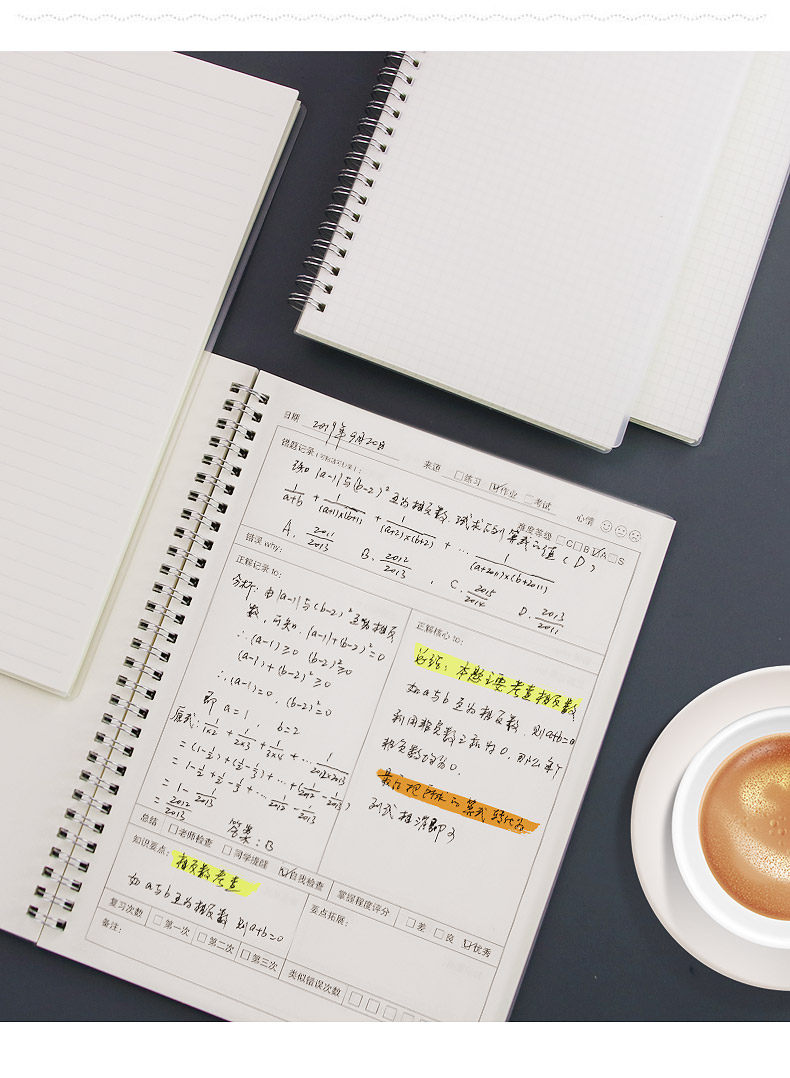 日期 2019年9月20日
来源 □练习 ☑作业 □考试 心情
错题记录(
|a-1|与(b-2)²互为相反数,试求下列算式的值(D) 难度等级 □C □B ☑A □S
1/(a+b) + 1/((a+1)×(b+1)) + 1/((a+2)×(b+2)) + … 1/((a+2011)×(b+2011))
A. 2011/2013 B. 2012/2013 , C. 2015/2014 D. 2013/2011
错误 why:
正解记录 to:
分析:由|a-1|与(b-2)²互为相反
数,可知,|a-1|+(b-2)²=0
∴(a-1)≥0 (b-2)²≥0
(a-1)+(b-2)²≥0
∴(a-1)=0,(b-2)²=0
即 a=1 , b=2
原式:1/1×2 + 1/2×3 + 1/3×4 + … 1/2012×2013
=(1-1/2)+(1/2-1/3)+…+(1/2012-1/2013)
=1-1/2+1/2-1/3+…1/2012-1/2013
=1-1/2013
=2012/2013
答案:B
正解核心 to:
总结:本题主要考查相反数
如a与b互为相反数,则a+b=0
利用相反数之和为0,那么每个
相反数均为0.
最后把所求的算式转化为
列式相消即可
总结 □老师检查 □同学提醒 ☑自我检查 掌握程度评分 □差 □良 ☑优秀
知识要点:相反数考查
如a与b互为相反数 则a+b=0
要点拓展:
复习次数 □第一次 □第二次 □第三次 类似错误次数 □ □ □ □
备注: